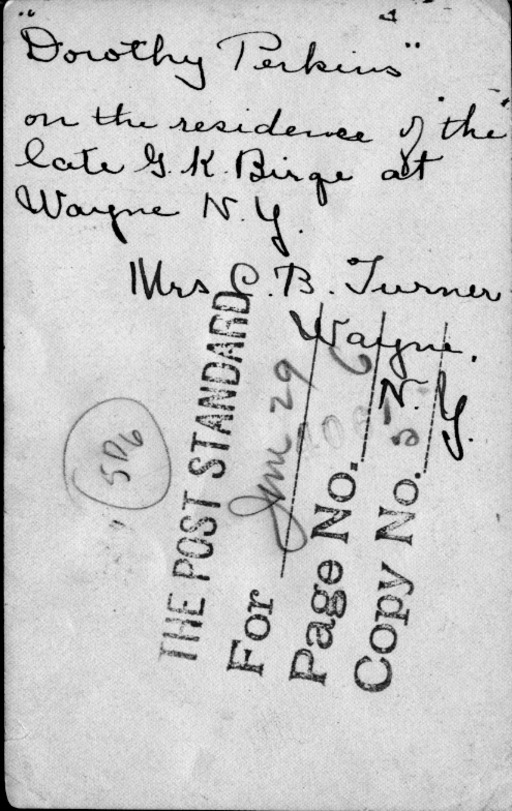 "Dorothy Perkins"
on the residence of "the"
late G. K. Birge at
Wayne N. Y.
Mrs C. B. Turner
Wayne,
N. Y.
5D6
THE POST STANDARD
For June 29
Page No. 6
Copy No. 5